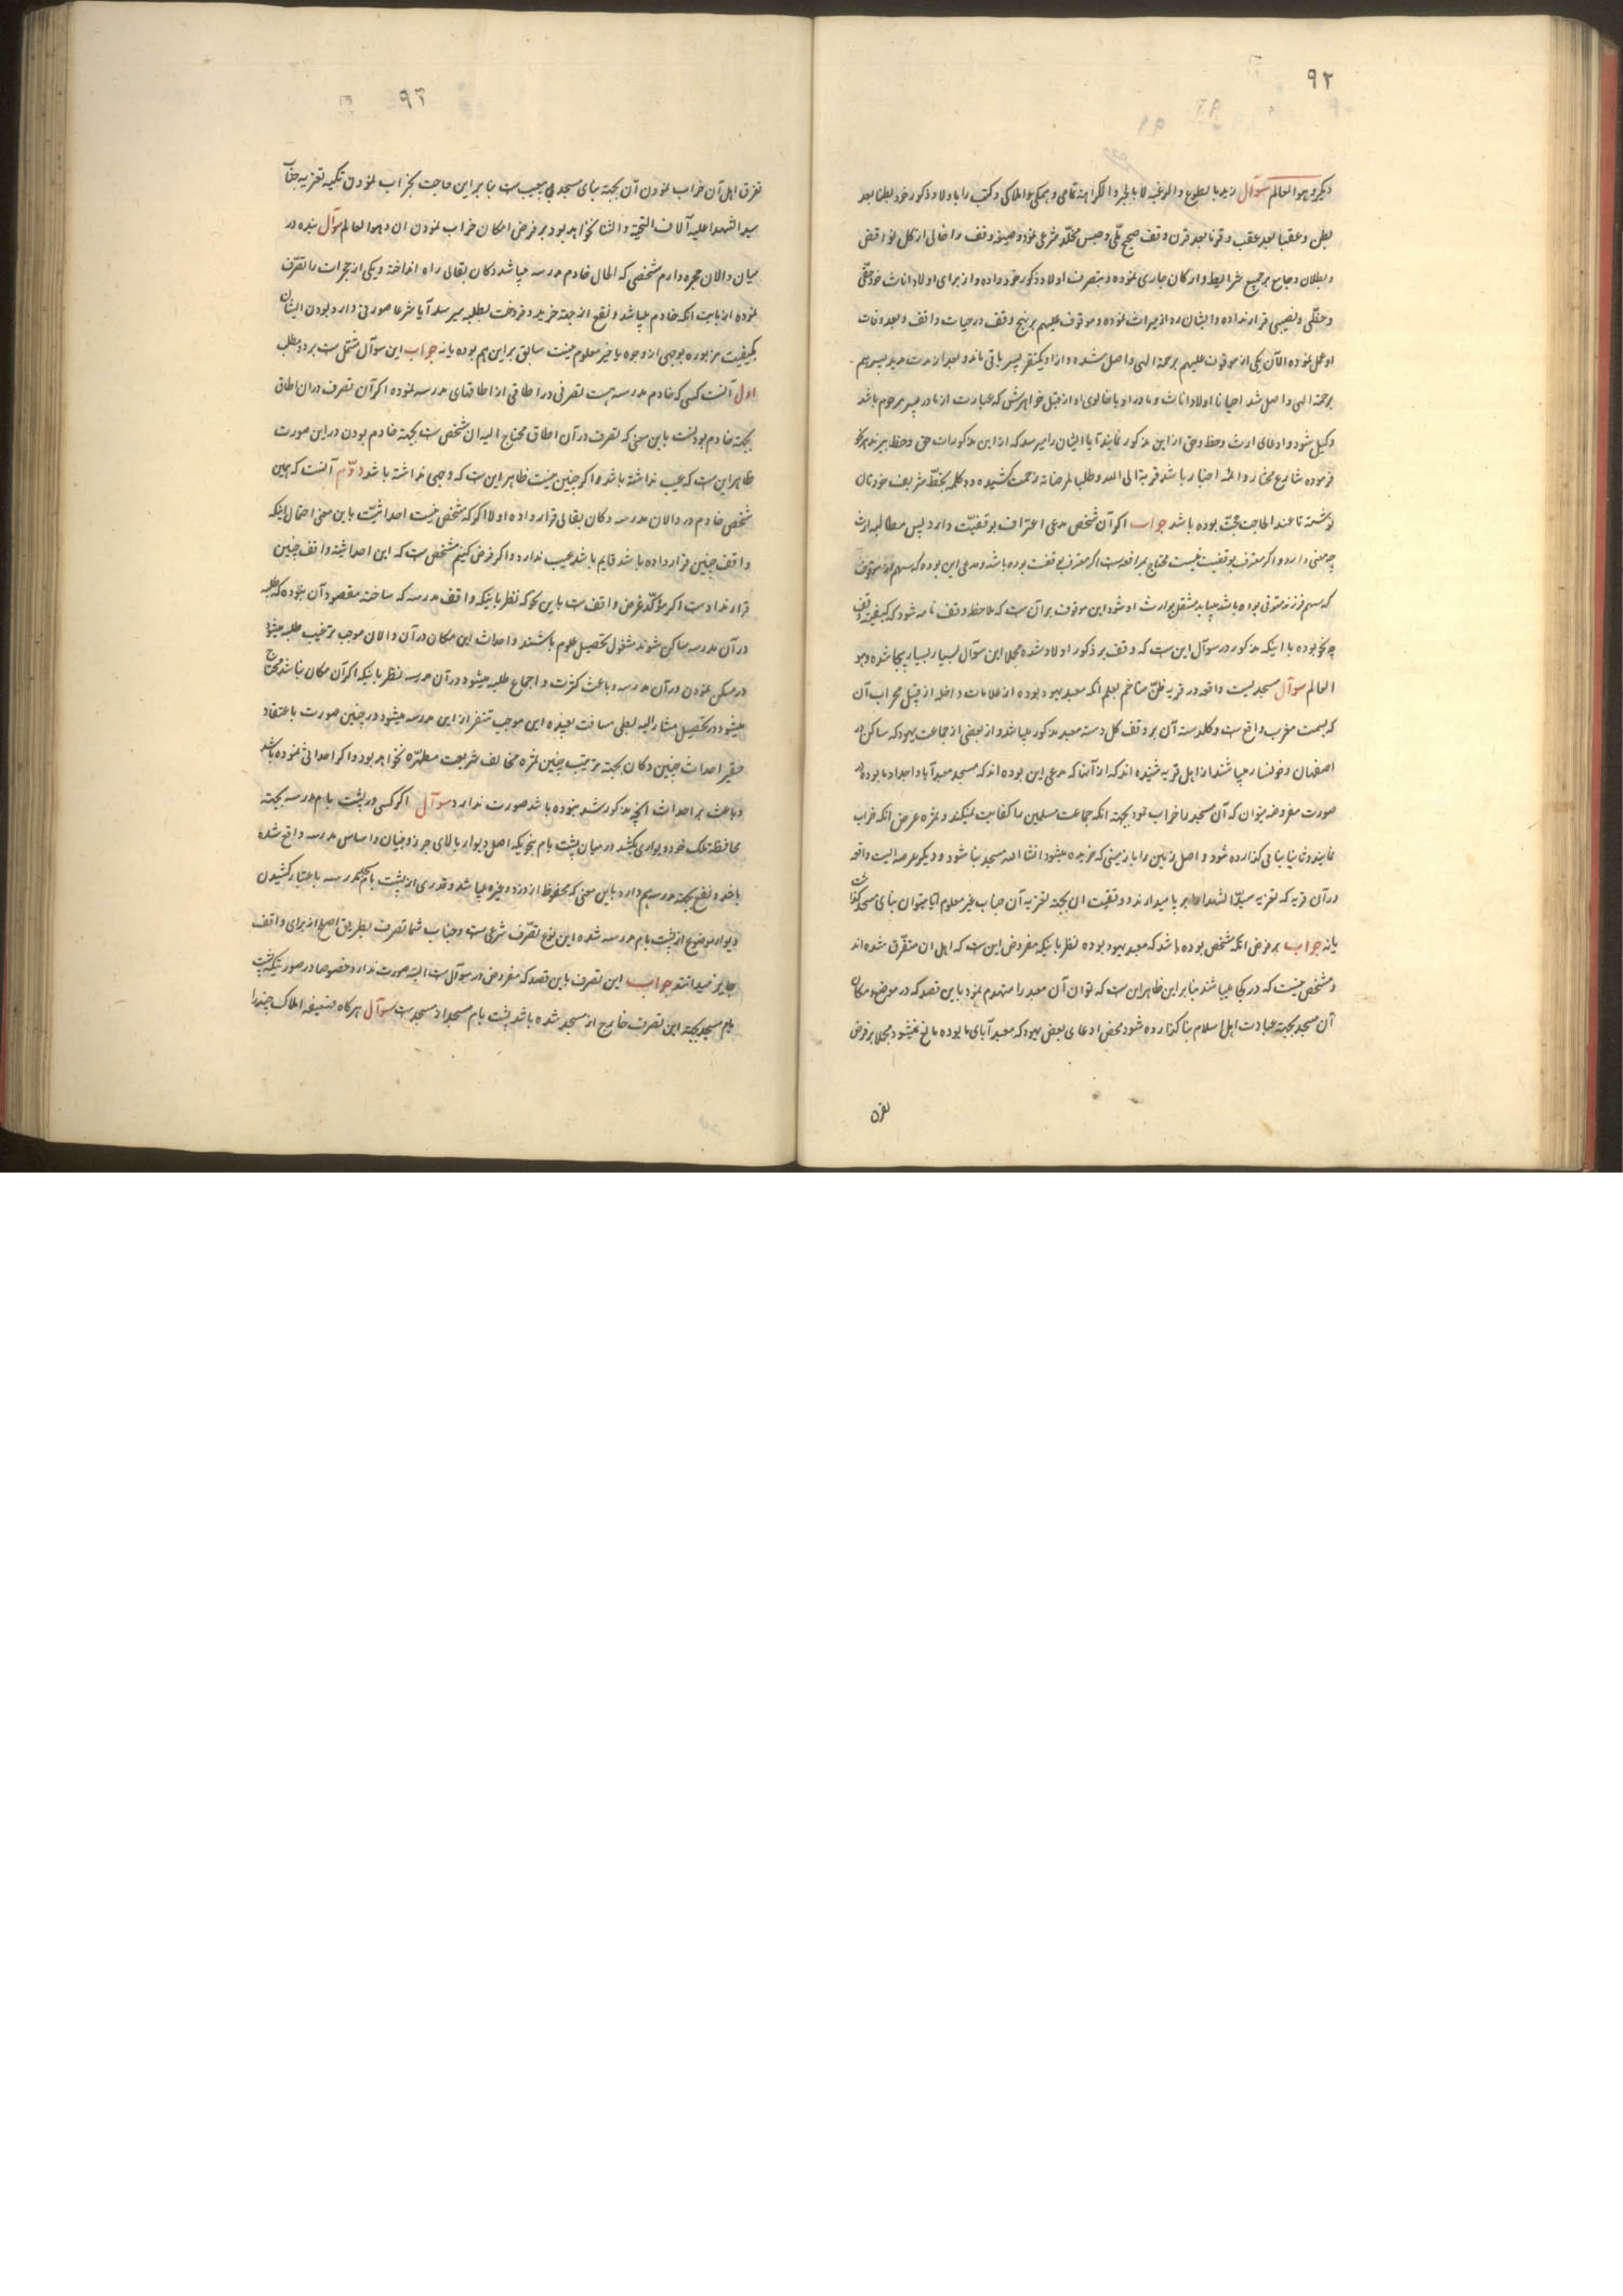 ۹۲
دیگر و هو العالم سوآل زید بالطوع والرغبه لا بالجبر والاکراهة تمامی و همکی املاکی و کتب را باولاد ذکور خود بطنا بعد
بطن و عقبا بعد عقب و قرنا بعد قرن وقف صحیح ملّی و حبس مخلّد شرعی نمود و صیغه وقف را خالی از کل نواقض
و بطلان و جامع بر جمیع شرایط و ارکان جاری نموده و بتصرف اولاد ذکور خود داده و از برای اولاد اناث خود حقّی
و حظّی و نصیبی قرار نداده و ایشان رد از میراث نموده و موقوف علیهم بر نهج وقف در حیات واقف و بعد وفات
او عمل نموده الآن یکی از موقوف علیهم برحمة الهی واصل شده و از او یکنفر پسر باقی ماند و بعد از مدت مدید پسر هم
برحمة الهی واصل شد احیانا اولاد اناث و مادر او یا خالوی او از قبل خواهرش که عبارت از مادر پسر مرحوم باشد
وکیل شود و ادعای ارث و حظ و حق از این مذکور نمایند آیا ایشان را میرسد که از این مذکورات حق و حظ ببرند هر نحو
فرموده شارع مختار و ائمه اخیار باشد قربة الی الله و طلبا لمرضاته زحمت کشیده دو کلمه بخطّ شریف خودتان
نوشته تا عند الحاجت حجّت بوده باشد جواب اکر آن شخص مدعی اعتراف بوقفیّت دارد پس مطالبه ارث
چه معنی دارد و اکر معترف بوقفیت نیست محتاج بمرافعه است اکر معترف بوقفیت بوده باشد و مدعی این بوده که سهم از موقوف
که سهم فرزند متوفی بوده باشد میباید منتقل بوارث او شود این موقوف بر آن است که ملاحظه وقف نامه شود که کیفیت وقف
چه نحو بوده با اینکه مذکور در سوآل این ست که وقف بر ذکور اولاد شده مجملا این سوآل بسیار بسیار بیجا شده و هو
العالم سوآل مسجدیست واقعه در قریه ظنّ متاخم بعلم انکه معبد یهود بوده از علامات داخله از قبیل محراب آن
که بسمت مغرب واقع ست و کلدسته آن بر وقف کل دسته معبد مذکور میباشد و از بعضی از جماعت یهود که ساکن در
اصفهان و خوانسار میباشند از اهل قریه شنیده اند که از آنها که مدعی این بوده اند که مسجد معبد آباء و اجداد ما بوده در
صورت مفروضه میتوان که آن مسجد را خراب نمود بجهته انکه جماعت مسلمین را کفایت نمیکند و ثمره عرض انکه خراب
نمایند و ثانیا بنائی کذارده شود و اصل زمین را با زمینی که خریده میشود انشاء الله مسجد بنا شود و دیکر عرصه ایست واقعه
در آن قریه که تعزیه سیّد الشهدا بر پا میدارند و وقفیت ان بجهته تعزیه آن جناب غیر معلوم آیا میتوان بنای مسجد کذاشت
یا نه جواب بر فرض انکه مشخص بوده باشد که معبد یهود بوده نظر باینکه مفروض این ست که اهل ان متفرّق شده اند
و مشخص نیست که در کجا میباشند بنابر این ظاهر این ست که توان آن معبد را منهدم نمود باین قصد که در موضع و مکان
آن مسجد بجهته عبادت اهل اسلام بنا کذارده شود محض ادعای بعض یهود که معبد آبای ما بوده مانع نمیشود مجملا بر فرض
تفرق
۹۳
تفرق اهل آن خراب نمودن آن بجهته بنای مسجد بی عیب ست بنابر این حاجت بخراب نمودن تکیه تعزیه جناب
سید الشهدا علیه آلاف التحیّة والثناء نخواهد بود بر فرض امکان خراب نمودن ان و هو العالم سوآل بنده در
میان دالان حجره دارم شخصی که الحال خادم مدرسه میباشد دکان بقالی راه انداخته و یکی از حجرات را تصرّف
نموده از بابت انکه خادم میباشد و نفع از جهته خرید و فروخت بطلبه میرسد آیا شرعا صورتی دارد بودن ایشان
بکیفیت مزبوره بوجهی از وجوه با غیر معلوم نیست سابق بر این هم بوده یا نه جواب این سوآل مشتمل ست بر دو مطلب
اول آنست کسی که خادم مدرسه است تصرفی در اطاقی از اطاقهای مدرسه نموده اکر آن تصرف در ان اطاق
بجهته خادم بودنست باین معنی که تصرف در آن اطاق محتاج الیه ان شخص ست بجهته خادم بودن در این صورت
ظاهر این ست که عیب نداشته باشد و اکر چنین نیست ظاهر این ست که وجهی نداشته باشد دوّم آنست که همین
شخص خادم در دالان مدرسه دکان بقالی قرار داده اولا اکر که مشخص نیست احداثیّت باین معنی احتمال اینکه
واقف چنین قرار داده باشد قایم باشد عیب ندارد و اکر فرض کنیم مشخص ست که این احداثیه واقف چنین
قرار نداد ست اکر مؤکّد غرض واقف ست باین نحو که نظر باینکه واقف مدرسه که ساخته مقصود آن بوده که طلبه
در آن مدرسه ساکن شوند مشغول تحصیل علوم باشند و احداث این مکان در آن دالان موجب ترغیب طلبه میشود
در مسکن نمودن در آن مدرسه و باعث کثرت و اجماع طلبه میشود در آن مدرسه نظر باینکه اکر آن مکان نباشد محتاج
میشود در تحصیل مشار الیه بطی مسافت بعیده این موجب تنفر از این مدرسه میشود در چنین صورت باعتقاد
حقیر احداث چنین دکان بجهته ترتیب چنین ثمره مخالف شریعت مطهّره نخواهد بود و اکر احداثی نموده باشد
و باعث بر احداث انچه مذکور شد نبوده باشد صورت ندارد سوآل اکر کسی در پشت بام مدرسه بجهته
محافظه ملک خود دیواری بکشد در میان پشت بام بنحویکه اصل دیوار بالای جرز و بنیان و اساس مدرسه واقع شده
باشد و نفع بجهته مدرسه هم دارد باین معنی که محفوظ از دزد و غیره میباشد و قدری از پشت بام مدرسه باعتبار کشیدن
دیوار موضوع از پشت بام مدرسه شده این نوع تصرّف شرعی ست و جناب شما تصرف بطریق اصلح از برای واقف
جایز میدانند جواب این تصرف باین قصد که مفروض در سوآل ست البته صورت ندارد خصوصا در صورتیکه پشت
بام مسجد بجهته این تصرف خارج از مسجد شده باشد پشت بام مسجد از مسجد ست سوآل هر کاه ضعیفه املاک چند را